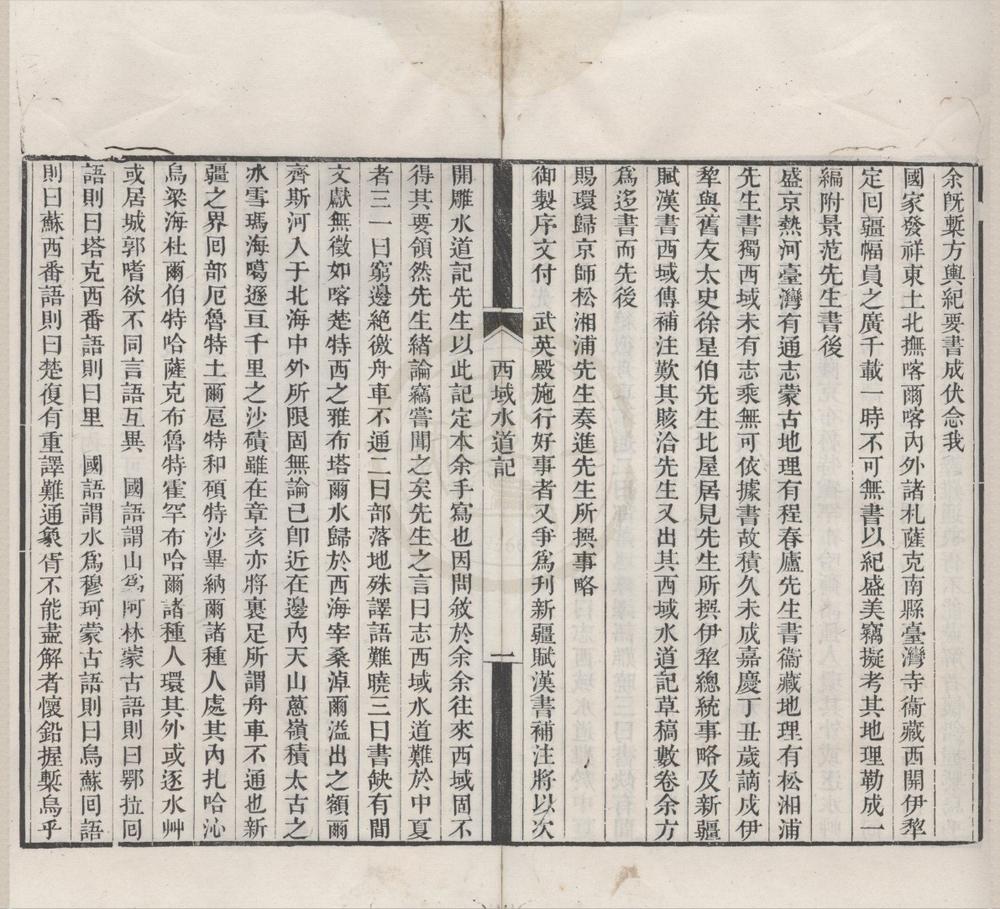 余旣槧方輿紀要書成伏念我
國家發祥東土北撫喀爾喀內外諸札薩克南縣臺灣寺衞藏西開伊犂
定回疆幅員之廣千載一時不可無書以紀盛美竊擬考其地理勒成一
編附景范先生書後
盛京熱河臺灣有通志蒙古地理有程春廬先生書衞藏地理有松湘浦
先生書獨西域未有志乘無可依據書故積久未成嘉慶丁丑歲謫戍伊
犂與舊友太史徐星伯先生比屋居見先生所撰伊犂總統事略及新疆
賦漢書西域傳補注歎其賅洽先生又出其西域水道記草稿數卷余方
爲迻書而先後
賜環歸京師松湘浦先生奏進先生所撰事略
御製序文付　武英殿施行好事者又爭爲刊新疆賦漢書補注將以次
西域水道記
一
開雕水道記先生以此記定本余手寫也因問敘於余余往來西域固不
得其要領然先生緒論竊嘗聞之矣先生之言曰志西域水道難於中夏
者三一曰窮邊絶徼舟車不通二曰部落地殊譯語難曉三曰書缺有閒
文獻無徵如喀楚特西之雅布塔爾水歸於西海宰桑淖爾溢出之額爾
齊斯河入于北海中外所限固無論已卽近在邊內天山蔥嶺積太古之
冰雪瑪海噶遜亘千里之沙磧雖在章亥亦將裹足所謂舟車不通也新
疆之界回部厄魯特土爾扈特和碩特沙畢納爾諸種人處其內扎哈沁
烏梁海杜爾伯特哈薩克布魯特霍罕布哈爾諸種人環其外或逐水艸
或居城郭嗜欲不同言語互異　國語謂山爲阿林蒙古語則曰鄂拉回
語則曰塔克西番語則曰里　國語謂水爲穆珂蒙古語則曰烏蘇回語
則曰蘇西番語則曰楚復有重譯難通象胥不能盡解者懷鉛握槧烏乎